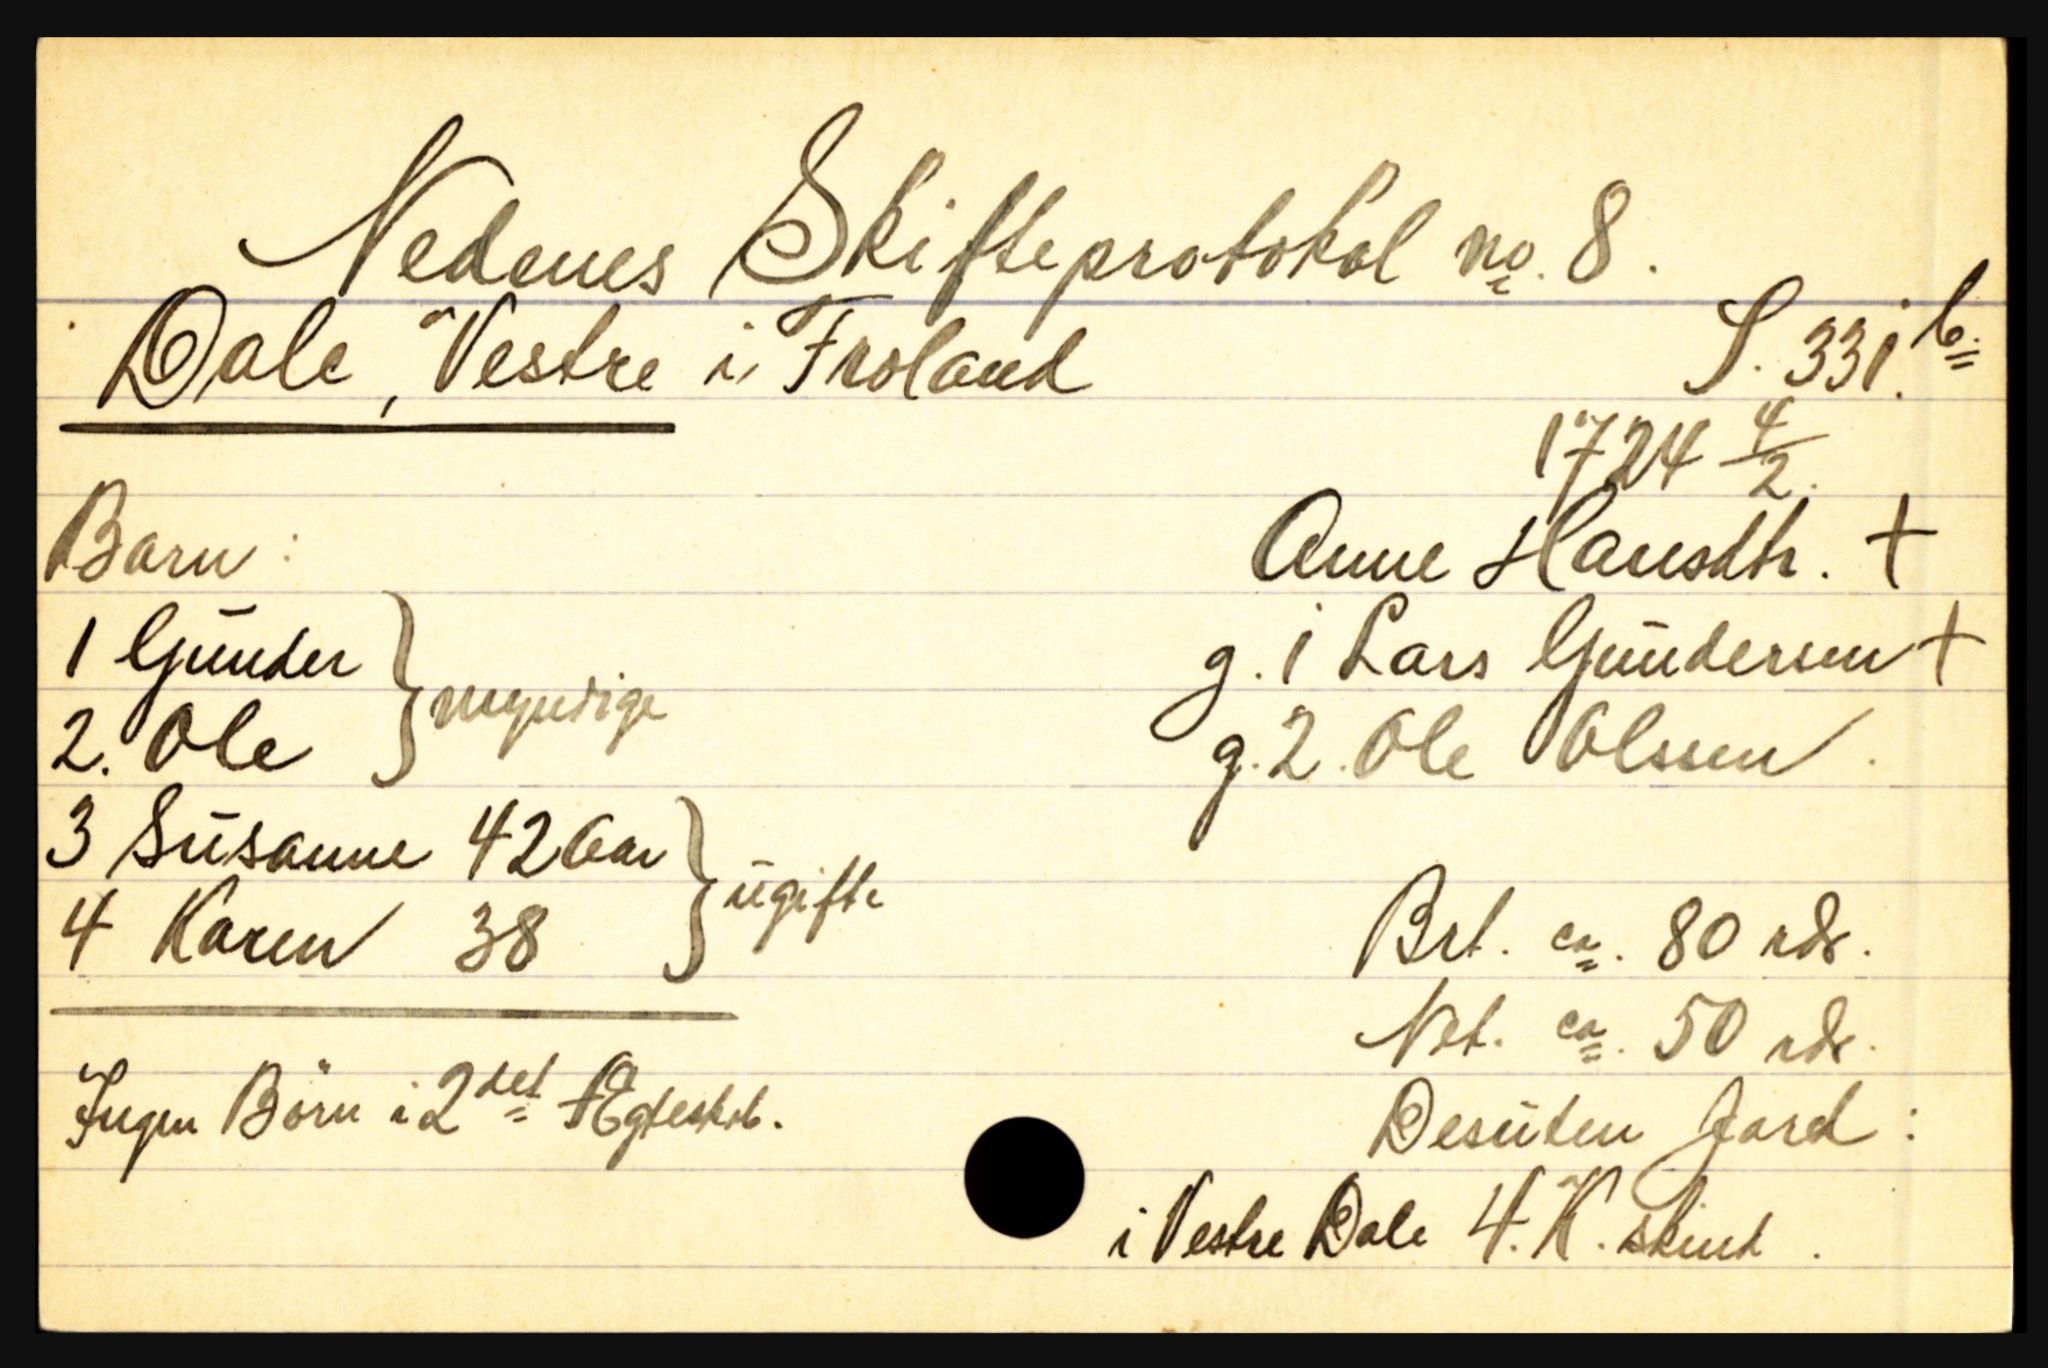 Nedenes Skifteprotokol no. 8.
Dale, Vestre i Froland
S. 331 b.
1724 4/2.
Anne Hansdtr. +
g. 1 Lars Gundersen +
g. 2. Ole Olssen.
Barn:
1 Gunder
2. Ole
} myndige
3 Susanne 42 Aar
4 Karen 38
} ugifte
Ingen Börn i 2det Ægtesk.
Brt. ca. 80 rdr.
Net. ca. 50 rdr.
Desuten Jord:
i Vestre Dale 4. K. skind.